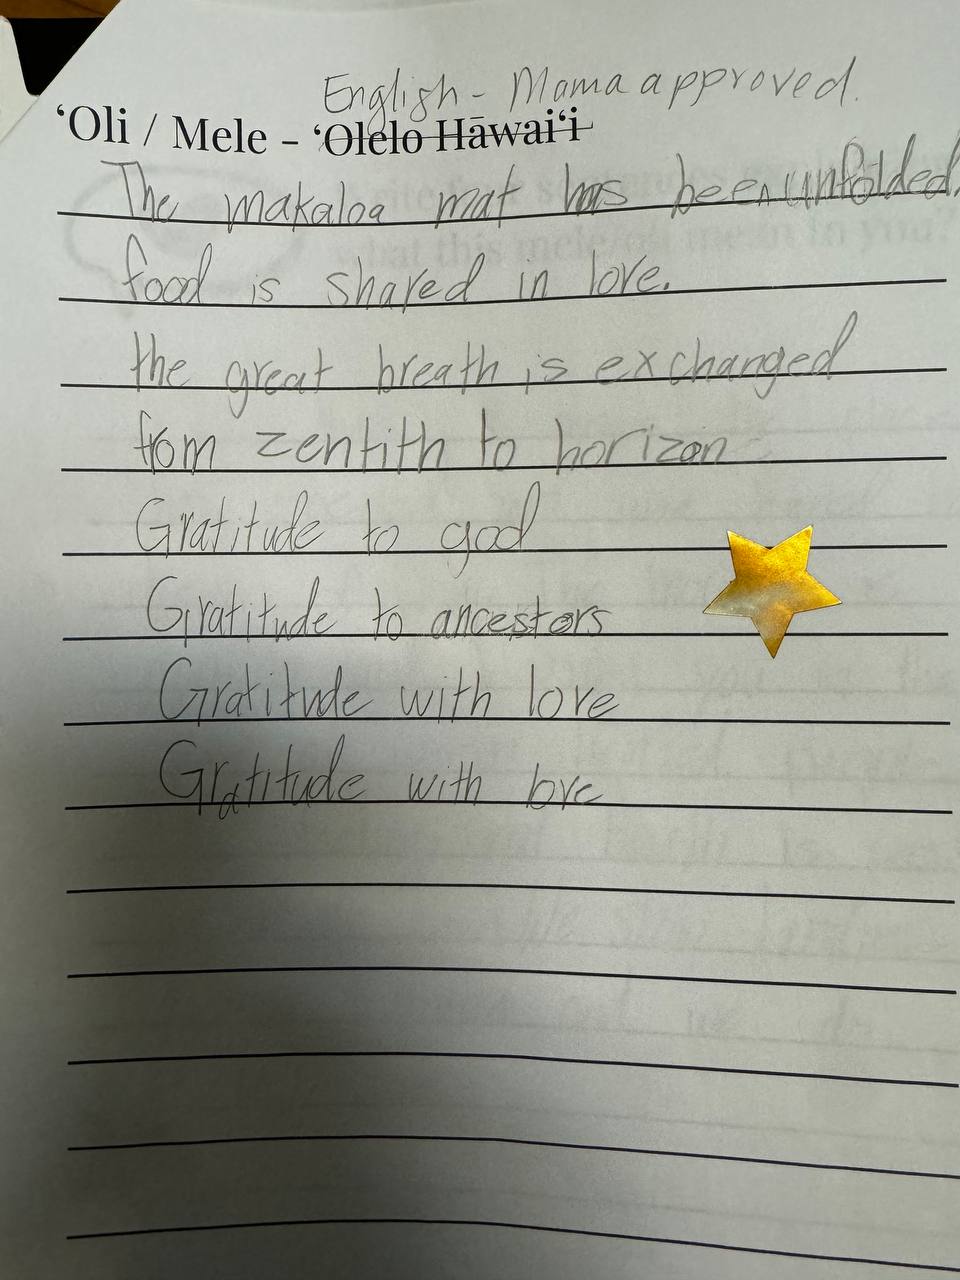 English - Mama approved.
ʻOli / Mele - ʻOlelo Hāwaiʻi
The makaloa mat has been unfolded,
food is shared in love.
the great breath is exchanged
from zentith to horizon
Gratitude to god
Gratitude to ancestors
Gratitude with love
Gratitude with love